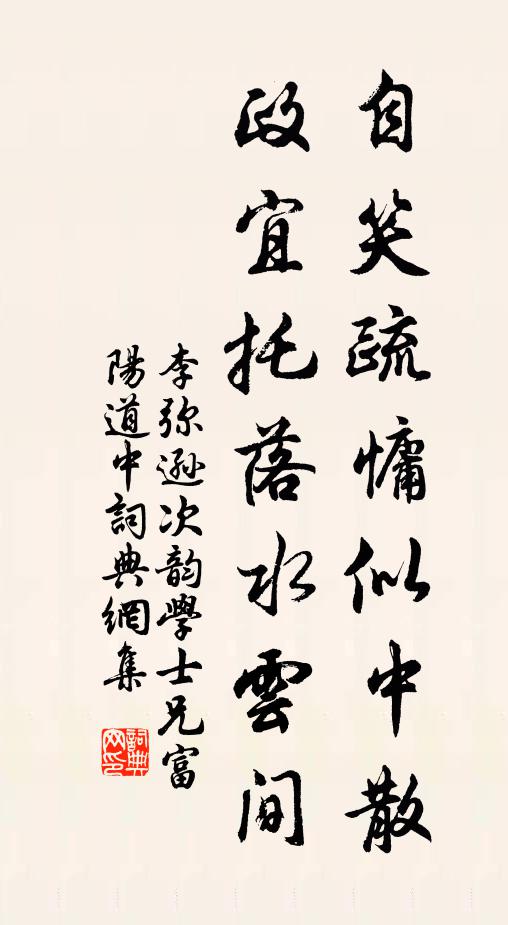 自笑疏慵似中散
政宜托落水雲間
李弥遜次韵學士兄富
陽道中詞典網集
詞典
网印